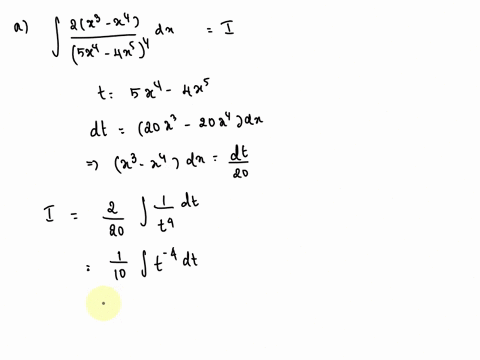 a) ∫ 2(x³ - x⁴) / (5x⁴ - 4x⁵)⁴ dx = I
t = 5x⁴ - 4x⁵
dt = (20x³ - 20x⁴) dx
⇒ (x³ - x⁴) dx = dt/20
I = 2/20 ∫ 1/t⁴ dt
= 1/10 ∫ t⁻⁴ dt